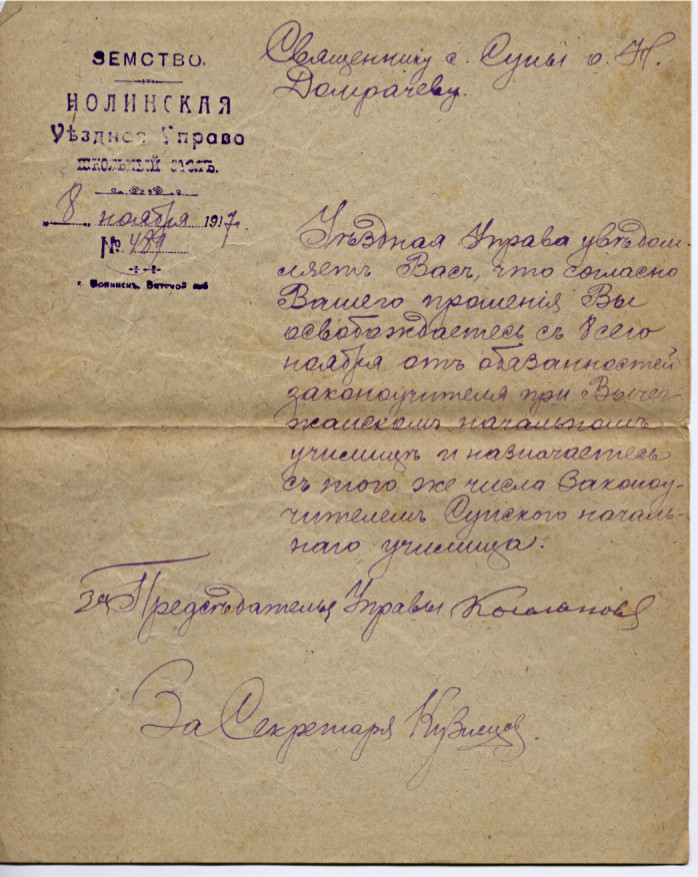 ЗЕМСТВО.
НОЛИНСКАЯ
Уѣздная Управа
ШКОЛЬНЫЙ СТОЛЪ.
„8„ ноября 1917.
№ 489
г. Нолинскъ, Вятской губ
Священнику с. Суны о. Н.
Домрачеву.
Уѣздная Управа увѣдом-
ляетъ Васъ, что согласно
Вашего прошенія Вы
освобаждаетесь съ 8 сего
ноября отъ обязанностей
законоучителя при
начальномъ
училищѣ и назначаетесь
съ того же числа Законоу-
чителемъ Сунского началь-
наго училища.
За Предсѣдателя Управы
За Секретаря Кузнецов.